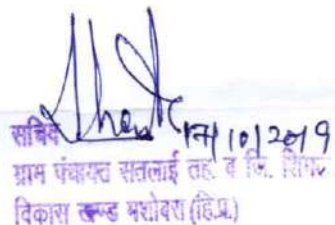 सचिव
17/10/2019
ग्राम पंचायत सतलाई तह. व जि. शिमला
विकास खण्ड मशोबरा (हि.प्र.)